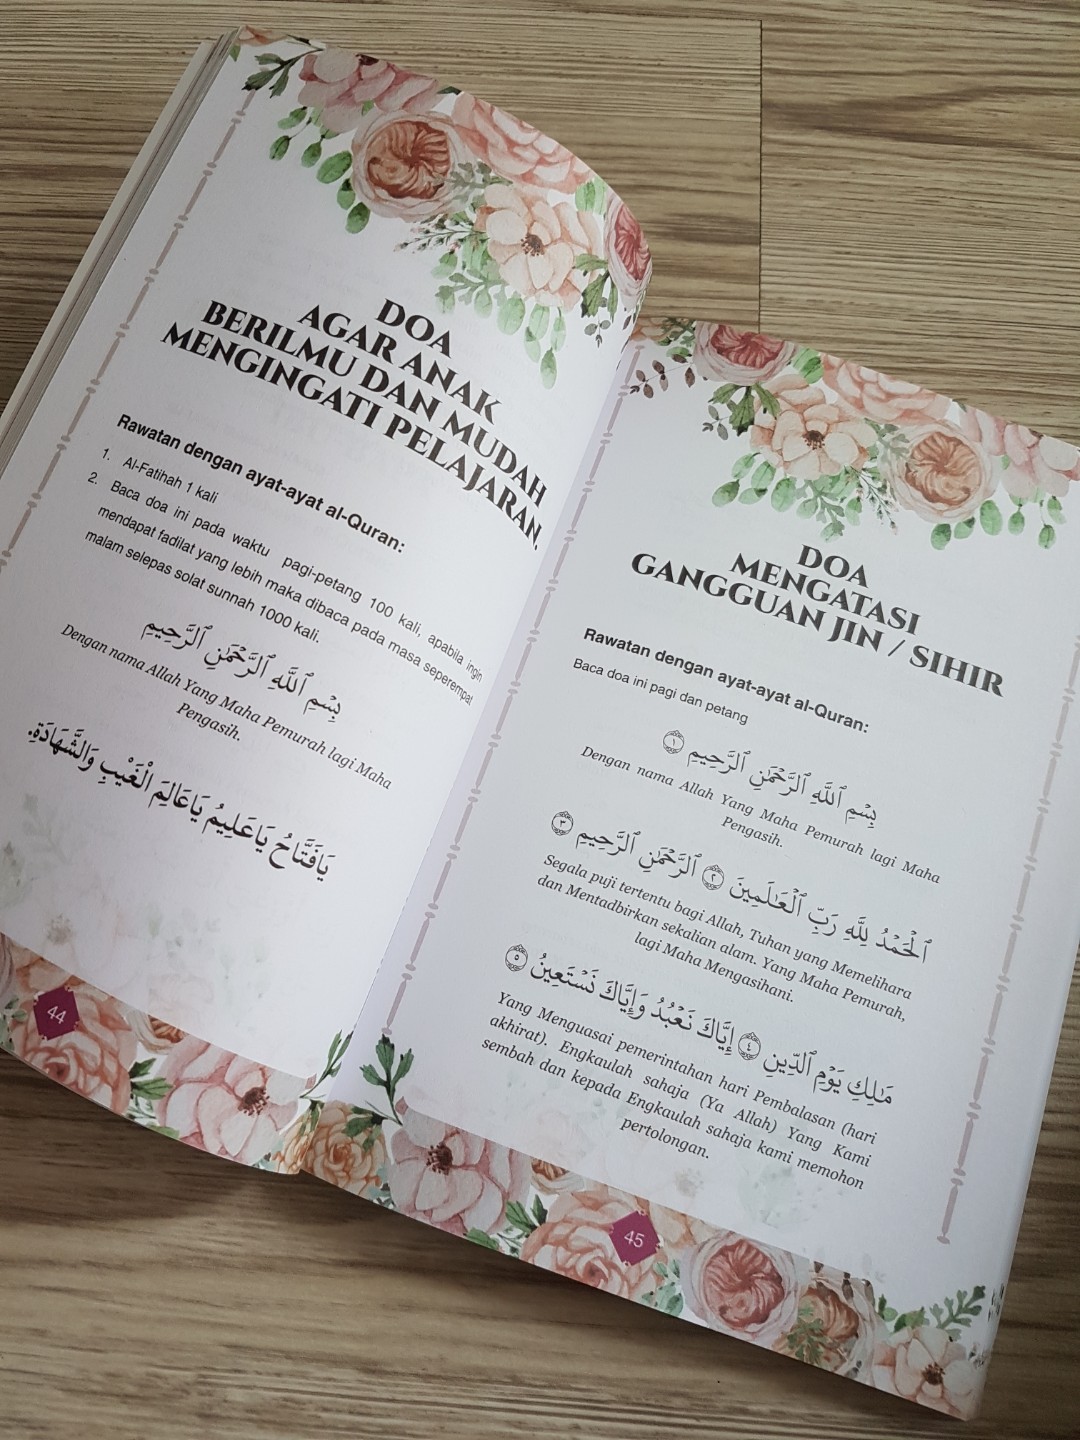 DOA
AGAR ANAK
BERILMU DAN MUDAH
MENGINGATI PELAJARAN.
Rawatan dengan ayat-ayat al-Quran:
1. Al-Fatihah 1 kali
2. Baca doa ini pada waktu pagi-petang 100 kali, apabila ingin
mendapat fadilat yang lebih maka dibaca pada masa seperempat
malam selepas solat sunnah 1000 kali.
بِسْمِ ٱللَّهِ ٱلرَّحْمَٰنِ ٱلرَّحِيمِ
Dengan nama Allah Yang Maha Pemurah lagi Maha
Pengasih.
يَافَتَّاحُ يَاعَلِيمُ يَاعَالِمَ الْغَيْبِ وَالشَّهَادَةِ.
44
DOA
MENGATASI
GANGGUAN JIN / SIHIR
Rawatan dengan ayat-ayat al-Quran:
Baca doa ini pagi dan petang
بِسْمِ ٱللَّهِ ٱلرَّحْمَٰنِ ٱلرَّحِيمِ ١
Dengan nama Allah Yang Maha Pemurah lagi Maha
Pengasih.
ٱلْحَمْدُ لِلَّهِ رَبِّ ٱلْعَٰلَمِينَ ٢ ٱلرَّحْمَٰنِ ٱلرَّحِيمِ ٣
Segala puji tertentu bagi Allah, Tuhan yang Memelihara
dan Mentadbirkan sekalian alam. Yang Maha Pemurah,
lagi Maha Mengasihani.
مَٰلِكِ يَوْمِ ٱلدِّينِ ٤ إِيَّاكَ نَعْبُدُ وَإِيَّاكَ نَسْتَعِينُ ٥
Yang Menguasai pemerintahan hari Pembalasan (hari
akhirat). Engkaulah sahaja (Ya Allah) Yang Kami
sembah dan kepada Engkaulah sahaja kami memohon
pertolongan.
45